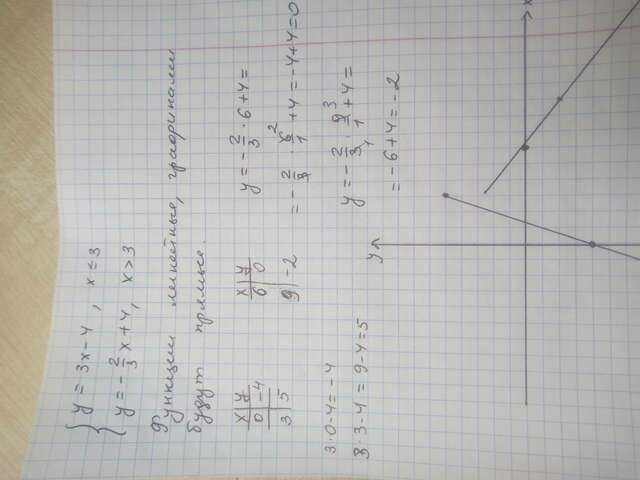 { y = 3x - 4, x ≤ 3
y = -2/3 x + 4, x > 3
Функции линейные, графиками
будут прямые.
x | y
0 | -4
3 | 5
3·0-4=-4
3·3-4=9-4=5
x | y
6 | 0
9 | -2
y = -2/3 · 6 + 4 =
= -2/3 · 6 2/1 + 4 = -4+4=0
y = -2/3 1 · 9 3/1 + 4 =
= -6+4 = -2
y
x